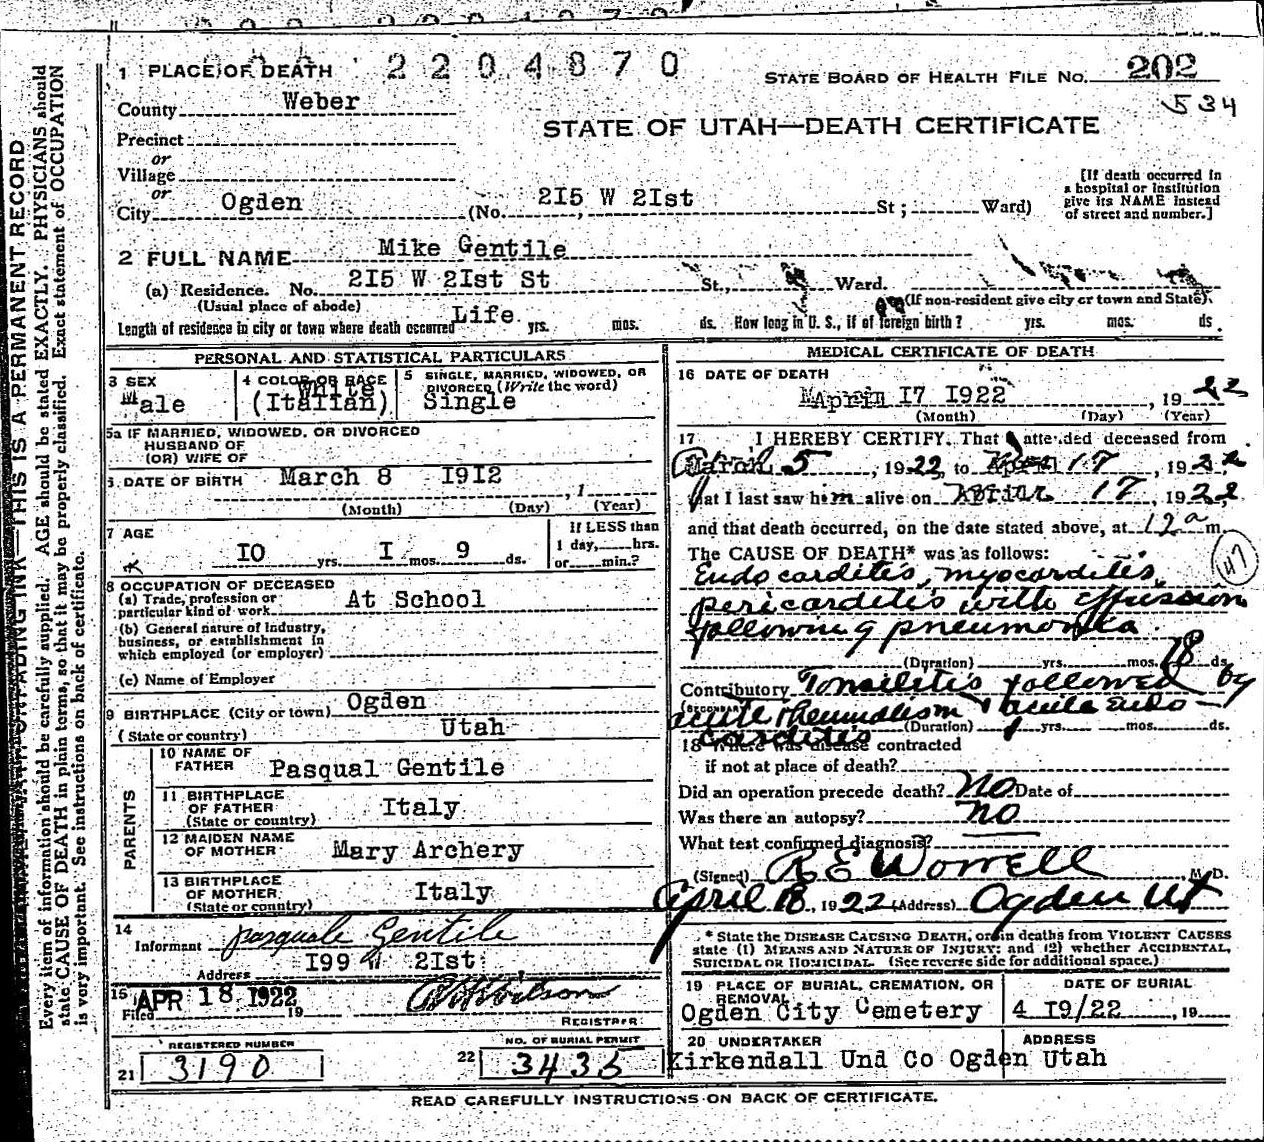 2204870
1 PLACE OF DEATH
STATE BOARD OF HEALTH FILE No. 202
534
County Weber
STATE OF UTAH—DEATH CERTIFICATE
Precinct
or
Village
or
City Ogden (No. 2I5 W 2Ist St; Ward)
[If death occurred in a hospital or institution give its NAME instead of street and number.]
2 FULL NAME Mike Gentile
(a) Residence. No. 2I5 W 2Ist St St., Ward.
(Usual place of abode) (If non-resident give city or town and State)
Length of residence in city or town where death occurred Life yrs. mos. ds. How long in U. S., if of foreign birth? yrs. mos. ds.
PERSONAL AND STATISTICAL PARTICULARS
3 SEX
Male
4 COLOR OR RACE
White
(Italian)
5 SINGLE, MARRIED, WIDOWED, OR DIVORCED (Write the word)
Single
5a IF MARRIED, WIDOWED, OR DIVORCED
HUSBAND OF
(OR) WIFE OF
6 DATE OF BIRTH March 8 I9I2 , 1
(Month) (Day) (Year)
7 AGE
IO yrs. I mos. 9 ds.
If LESS than
1 day, hrs.
or min.?
8 OCCUPATION OF DECEASED
(a) Trade, profession or
particular kind of work At School
(b) General nature of Industry,
business, or establishment in
which employed (or employer)
(c) Name of Employer
9 BIRTHPLACE (City or town) Ogden
(State or country) Utah
PARENTS
10 NAME OF
FATHER Pasqual Gentile
11 BIRTHPLACE
OF FATHER Italy
(State or country)
12 MAIDEN NAME
OF MOTHER Mary Archery
13 BIRTHPLACE
OF MOTHER Italy
(State or country)
14
Informant Pasquale Gentile
Address I99 W 2Ist
15 APR 18 1922
Filed 19
REGISTRAR
REGISTERED NUMBER
21 3190
NO. OF BURIAL PERMIT
22 3435
MEDICAL CERTIFICATE OF DEATH
16 DATE OF DEATH
April I7 I922 , 19 22
(Month) (Day) (Year)
17 I HEREBY CERTIFY, That I attended deceased from
March 5 , 1922, to April 17 , 1922
that I last saw him alive on April 17 , 1922,
and that death occurred, on the date stated above, at 12 a m.
The CAUSE OF DEATH* was as follows:
Endocarditis, myocarditis,
pericarditis with effusion
following pneumonia.
147
(Duration) yrs. mos. 18 ds.
Contributory Tonsilitis followed by
(SECONDARY)
acute rheumatism & acute endo-
carditis
(Duration) yrs. mos. ds.
18 Where was disease contracted
if not at place of death?
Did an operation precede death? no Date of
Was there an autopsy? no
What test confirmed diagnosis?
(Signed) R E Worrell M.D.
April 18, 1922 (Address) Ogden Ut
* State the DISEASE CAUSING DEATH, or in deaths from VIOLENT CAUSES
state (1) MEANS AND NATURE OF INJURY; and (2) whether ACCIDENTAL,
SUICIDAL OR HOMICIDAL. (See reverse side for additional space.)
19 PLACE OF BURIAL, CREMATION, OR REMOVAL
Ogden City Cemetery
DATE OF BURIAL
4 I9/22 , 19
20 UNDERTAKER
Kirkendall Und Co
ADDRESS
Ogden Utah
READ CAREFULLY INSTRUCTIONS ON BACK OF CERTIFICATE.
UNFADING INK—THIS IS A PERMANENT RECORD
Every item of information should be carefully supplied. AGE should be stated EXACTLY. PHYSICIANS should
state CAUSE OF DEATH in plain terms, so that it may be properly classified. Exact statement of OCCUPATION
is very important. See instructions on back of certificate.